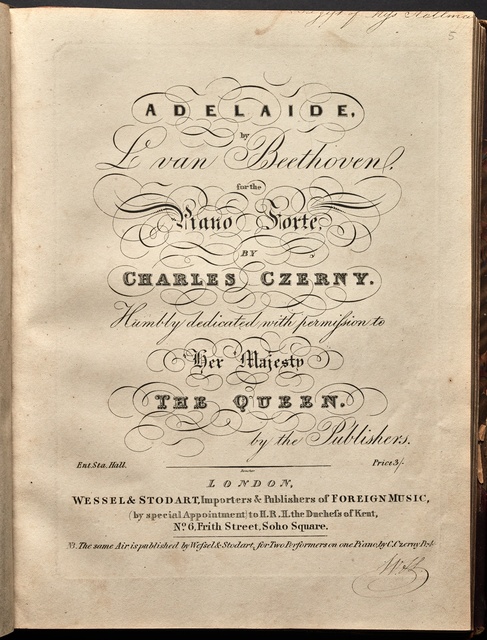 gift of
5
ADELAIDE,
by
L van Beethoven.
for the
Piano Forte,
BY
CHARLES CZERNY.
Humbly dedicated with permiſsion to
Her Majesty
THE QUEEN.
by the Publishers.
Ent. Sta. Hall.
Price 3/-
LONDON,
WESSEL & STODART, Importers & Publishers of FOREIGN MUSIC,
(by special Appointment) to H.R.H. the Ducheſs of Kent,
No. 6, Frith Street, Soho Square.
NB. The same Air is published by Weſsel & Stodart, for Two Performers on one Piano, by C. Czerny